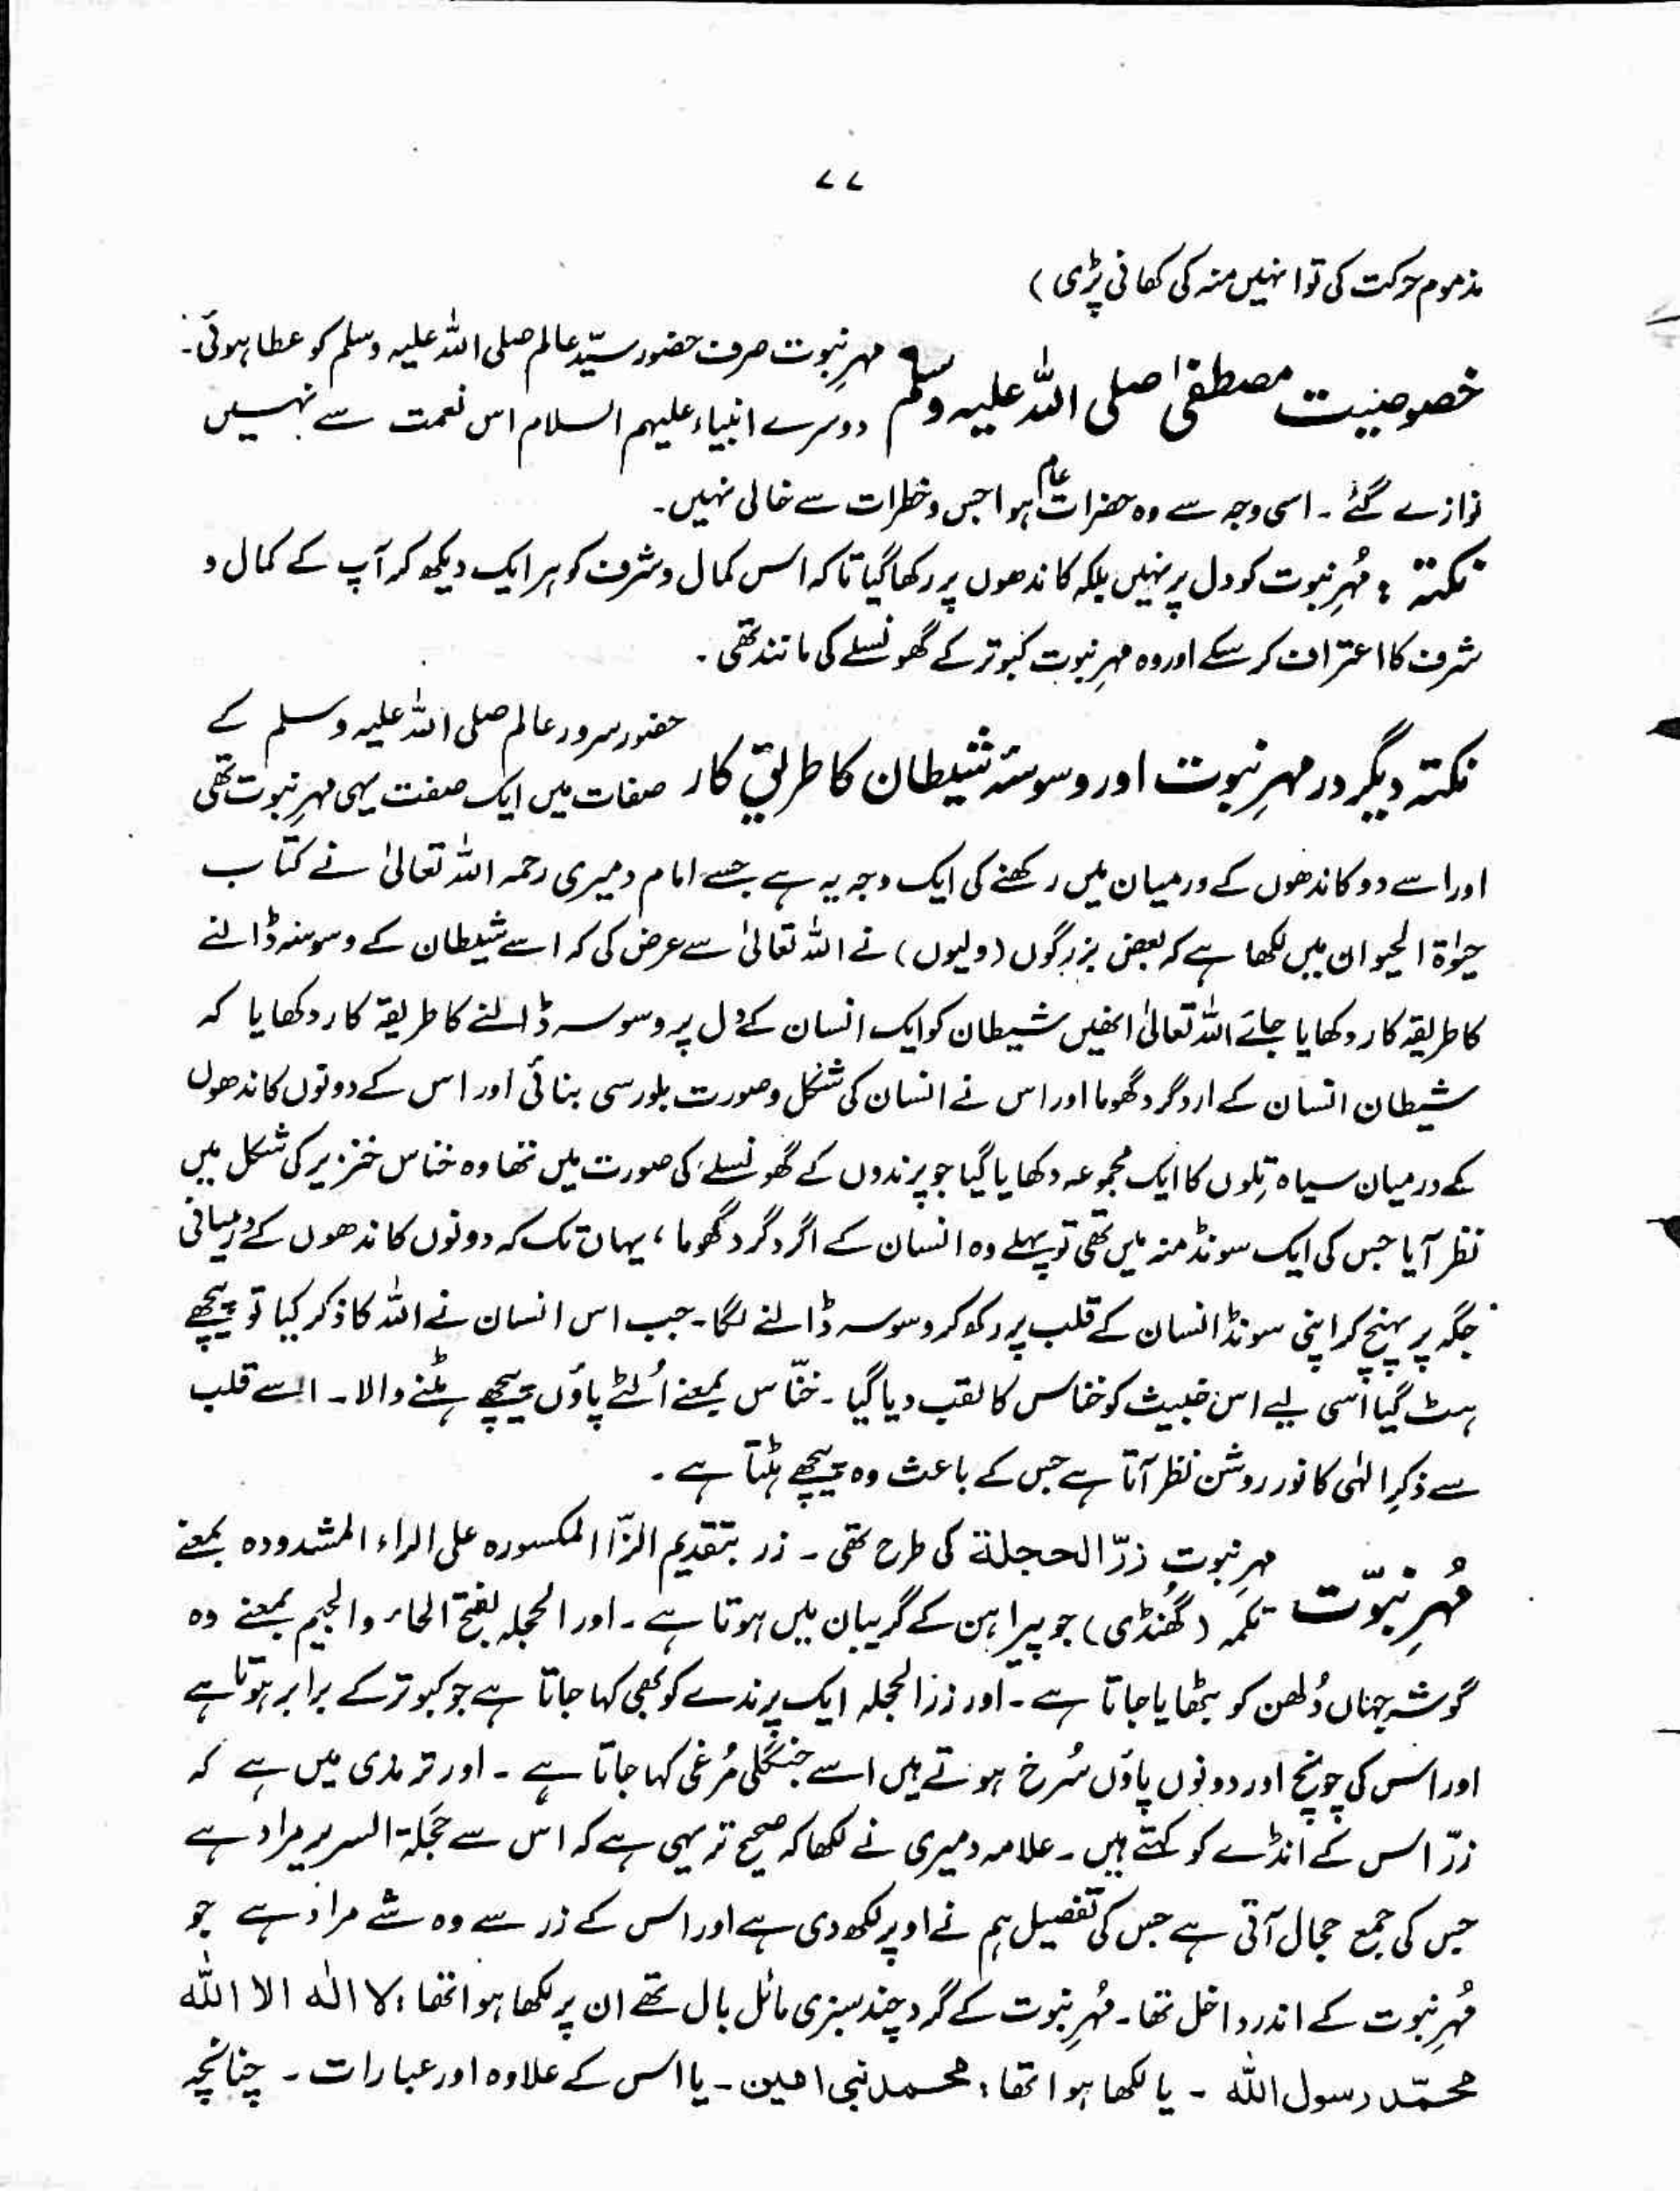 ۷۷
مذموم حرکت کی تو انہیں منہ کی کھانی پڑی)
خصوصیت مصطفیٰ صلی اللہ علیہ وسلم مہرِ نبوت صرف حضور سیّد عالم صلی اللہ علیہ وسلم کو عطا ہوئی۔
دوسرے انبیاء علیہم السلام اس نعمت سے نہیں
نوازے گئے۔ اسی وجہ سے وہ حضرات عام ہواجس و خطرات سے خالی نہیں۔
نکتہ : مُہرِ نبوت کو دل پر نہیں بلکہ کاندھوں پر رکھا گیا تاکہ اس کمال و شرف کو ہر ایک دیکھ کر آپ کے کمال و
شرف کا اعتراف کر سکے اور وہ مہرِ نبوت کبوتر کے گھونسلے کی مانند تھی۔
نکتہ دیگر در مہرِ نبوت اور وسوسۂ شیطان کا طریقِ کار حضور سرور عالم صلی اللہ علیہ وسلم کے
صفات میں ایک صفت یہی مہرِ نبوت تھی
اور اسے دو کاندھوں کے درمیان میں رکھنے کی ایک وجہ یہ ہے جسے امام دمیری رحمہ اللہ تعالیٰ نے کتاب
حیٰوۃ الحیوان میں لکھا ہے کہ بعض بزرگوں (ولیوں) نے اللہ تعالیٰ سے عرض کی کہ اسے شیطان کے وسوسہ ڈالنے
کا طریقہ کار دکھایا جائے اللہ تعالیٰ انھیں شیطان کو ایک انسان کے دل پر وسوسہ ڈالنے کا طریقہ کار دکھایا کہ
شیطان انسان کے اردگرد گھوما اور اس نے انسان کی شکل و صورت بلور سی بنائی اور اس کے دونوں کاندھوں
کے درمیان سیاہ تِلوں کا ایک مجموعہ دکھایا گیا جو پرندوں کے گھونسلے کی صورت میں تھا وہ خناس خنزیر کی شکل میں
نظر آیا جس کی ایک سونڈ منہ میں تھی تو پہلے وہ انسان کے اگر دگرد گھوما، یہاں تک کہ دونوں کاندھوں کے درمیانی
جگہ پر پہنچ کر اپنی سونڈ انسان کے قلب پر رکھ کر وسوسہ ڈالنے لگا۔ جب اس انسان نے اللہ کا ذکر کیا تو پیچھے
ہٹ گیا اسی لیے اس خبیث کو خناس کا لقب دیا گیا۔ خنّاس بمعنے اُلٹے پاؤں پیچھے ہٹنے والا۔ اسے قلب
سے ذکرِ الٰہی کا نور روشن نظر آتا ہے جس کے باعث وہ پیچھے ہٹتا ہے۔
مُہرِ نبوّت مہرِ نبوت زرّ الحجلۃ کی طرح تھی۔ زر بتقدیم الزّا المکسورہ علی الراء المشدودہ بمعنے
تکمہ (گھُنڈی) جو پیراہن کے گریبان میں ہوتا ہے۔ اور الحجلہ بفتح الحاء والجیم بمعنے وہ
گوشہ جہاں دُلھن کو بٹھایا جاتا ہے۔ اور زر الحجلہ ایک پرندے کو بھی کہا جاتا ہے جو کبوتر کے برابر ہوتا ہے
اور اس کی چونچ اور دونوں پاؤں سُرخ ہوتے ہیں اسے جنگلی مُرغی کہا جاتا ہے۔ اور ترمذی میں ہے کہ
زرّ اس کے انڈے کو کہتے ہیں۔ علامہ دمیری نے لکھا کہ صحیح تر یہی ہے کہ اس سے حَجَلۃ السریر مراد ہے
جس کی جمع حجال آتی ہے جس کی تفصیل ہم نے اوپر لکھ دی ہے اور اس کے زر سے وہ شے مراد ہے جو
مُہرِ نبوت کے اندر داخل تھا۔ مُہرِ نبوت کے گرد چند سبزی مائل بال تھے ان پر لکھا ہوا تھا : لا الٰہ الا اللہ
محمّد رسول اللہ ۔ یا لکھا ہوا تھا : محمد نبی امین ۔ یا اس کے علاوہ اور عبارات ۔ چنانچہ